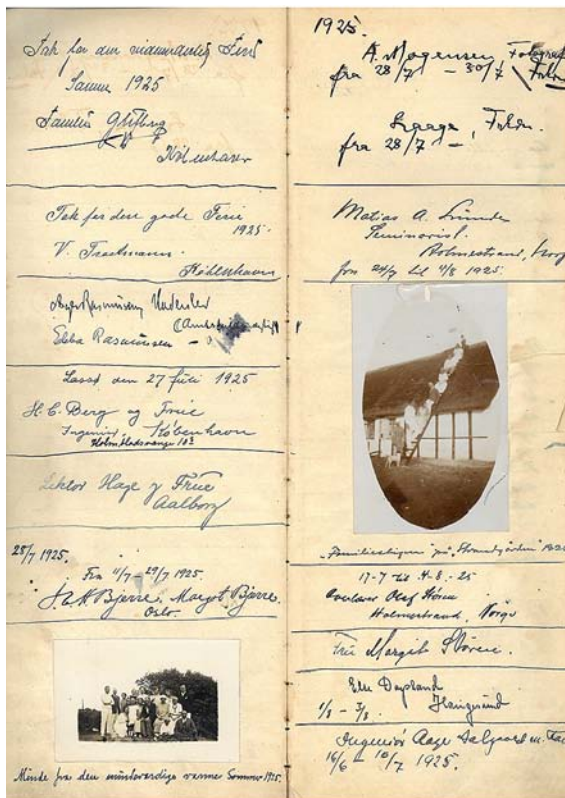 Tak for den vidunderlig Ferie
Sommer 1925
Familien
København
Tak for den gode Ferie
1925.
V. Trautmann.
København
Rasmussen Haderslev
Ebba Rasmussen
Læssø den 27 Juli 1925
H.C. Berg og Frue
Ingeniør, København
Holmbladsvænge 10²
Lektor Hage og Frue
Aalborg
28/7 1925.
Fra 11/7 - 29/7 1925.
Bjerre. Margot Bjerre.
Oslo.
Minde fra den mindeværdige varme Sommer 1925.
1925.
A. Mogensen, Fotograf
fra 28/7 - 30/7
fra 28/7 -
Matias A.
Seminarist.
Holmestrand,
fra 24/7 til 4/8 1925.
"Familiestigen" på "Strandgården" 1925
17-7 til 4-8-25
Overlærer Olaf Støren
Holmestrand, Norge
Fru Margit Støren.
Haugesund
1/8 - 3/8
Ingeniør Aage Aalgaard m.
16/6 - 10/7 1925.